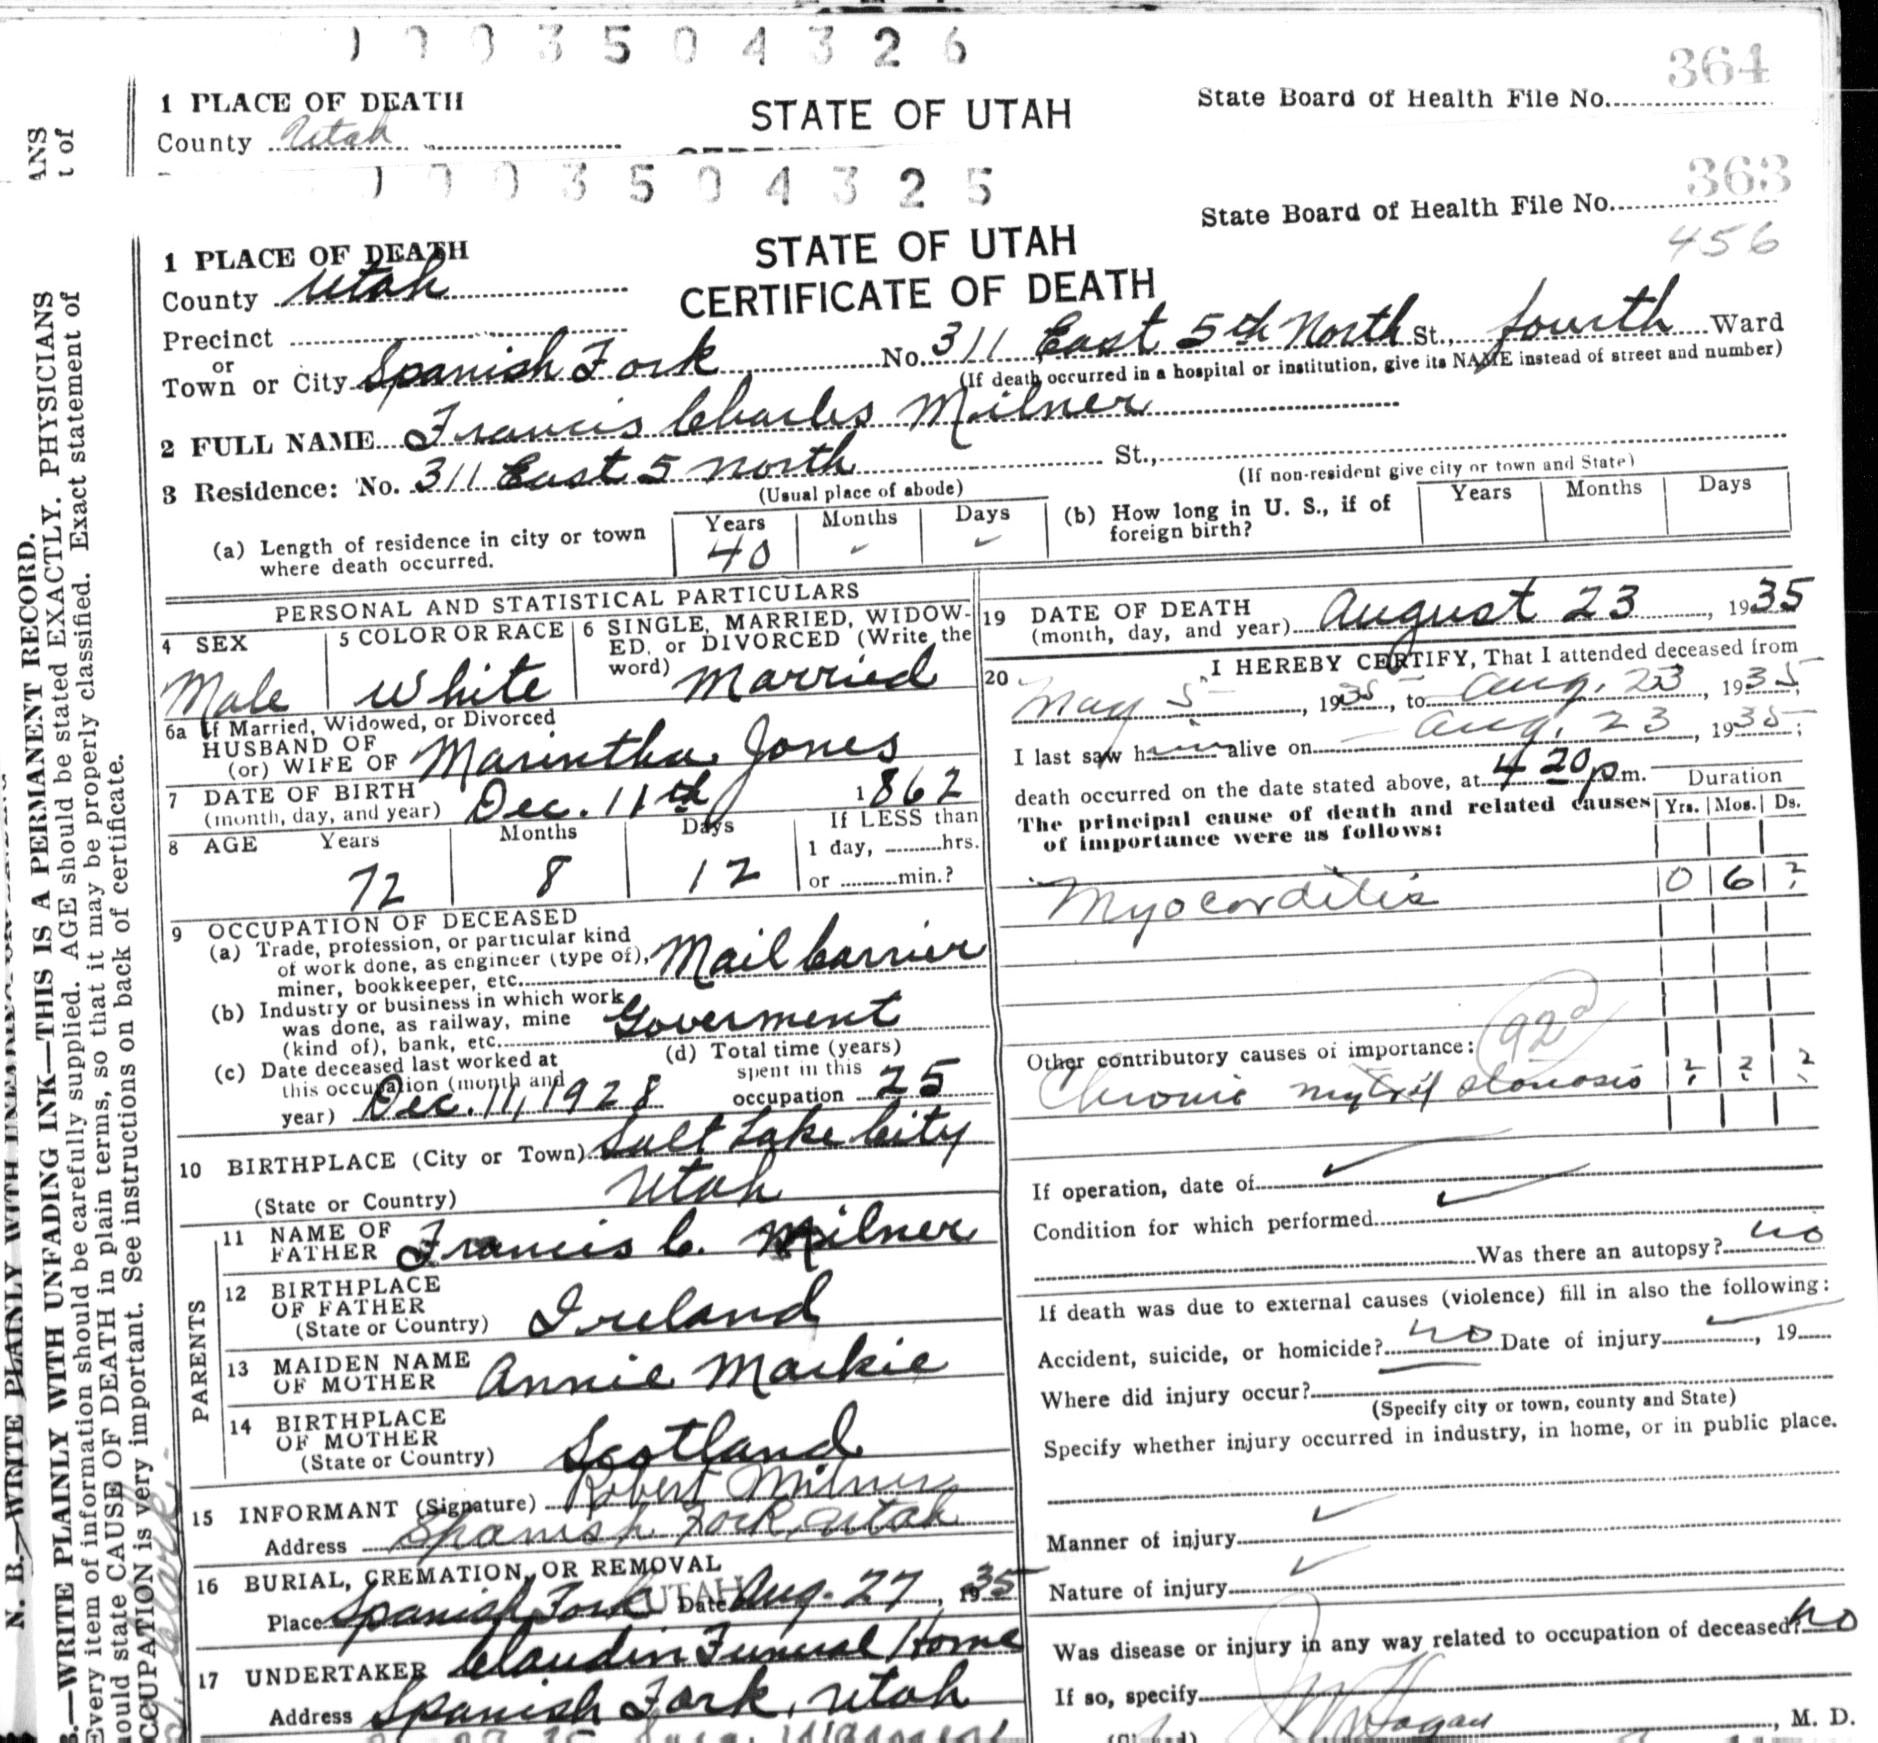 1 0 0 3 5 0 4 3 2 6
364
1 PLACE OF DEATH
STATE OF UTAH
State Board of Health File No.
County Utah
1 0 0 3 5 0 4 3 2 5
363
State Board of Health File No.
456
1 PLACE OF DEATH
STATE OF UTAH
County Utah
CERTIFICATE OF DEATH
Precinct
or
Town or City Spanish Fork No. 311 East 5th North St., fourth Ward
(If death occurred in a hospital or institution, give its NAME instead of street and number)
2 FULL NAME Francis Charles Milner
3 Residence: No. 311 East 5 North St.,
(Usual place of abode) (If non-resident give city or town and State)
(a) Length of residence in city or town where death occurred. Years 40 Months - Days -
(b) How long in U. S., if of foreign birth? Years Months Days
PERSONAL AND STATISTICAL PARTICULARS
4 SEX Male
5 COLOR OR RACE White
6 SINGLE, MARRIED, WIDOW-
ED, or DIVORCED (Write the
word) Married
6a If Married, Widowed, or Divorced
HUSBAND OF
(or) WIFE OF Marintha Jones
7 DATE OF BIRTH
(month, day, and year) Dec. 11th 1862
8 AGE Years 72 Months 8 Days 12
If LESS than
1 day, hrs.
or min.?
9 OCCUPATION OF DECEASED
(a) Trade, profession, or particular kind
of work done, as engineer (type of),
miner, bookkeeper, etc. Mail Carrier
(b) Industry or business in which work
was done, as railway, mine
(kind of), bank, etc. Goverment
(c) Date deceased last worked at
this occupation (month and
year) Dec. 11, 1928
(d) Total time (years)
spent in this
occupation 25
10 BIRTHPLACE (City or Town) Salt Lake City
(State or Country) Utah
PARENTS
11 NAME OF
FATHER Francis C. Milner
12 BIRTHPLACE
OF FATHER
(State or Country) Ireland
13 MAIDEN NAME
OF MOTHER Annie Mackie
14 BIRTHPLACE
OF MOTHER
(State or Country) Scotland
15 INFORMANT (Signature) Robert Milner
Address Spanish Fork, Utah
16 BURIAL, CREMATION, OR REMOVAL
Place Spanish Fork UTAH Date Aug. 27, 1935
17 UNDERTAKER Claudin Funeral Home
Address Spanish Fork, Utah
19 DATE OF DEATH
(month, day, and year) August 23, 1935
20 I HEREBY CERTIFY, That I attended deceased from
May 5, 1935, to Aug. 23, 1935,
I last saw him alive on Aug. 23, 1935;
death occurred on the date stated above, at 4 20 p m.
Duration
The principal cause of death and related causes
of importance were as follows:
Yrs. Mos. Ds.
Myocarditis 0 6 ?
92d
Other contributory causes of importance:
Chronic stenosis ? ? ?
If operation, date of
Condition for which performed
Was there an autopsy? no
If death was due to external causes (violence) fill in also the following:
Accident, suicide, or homicide? no Date of injury , 19
Where did injury occur?
(Specify city or town, county and State)
Specify whether injury occurred in industry, in home, or in public place.
Manner of injury
Nature of injury
Was disease or injury in any way related to occupation of deceased? no
If so, specify
Hagan , M. D.
ANS
t of
N. B.—WRITE PLAINLY WITH
B.—WRITE PLAINLY WITH UNFADING INK—THIS IS A PERMANENT RECORD.
Every item of information should be carefully supplied. AGE should be stated EXACTLY. PHYSICIANS
ould state CAUSE OF DEATH in plain terms, so that it may be properly classified. Exact statement of
OCCUPATION is very important. See instructions on back of certificate.